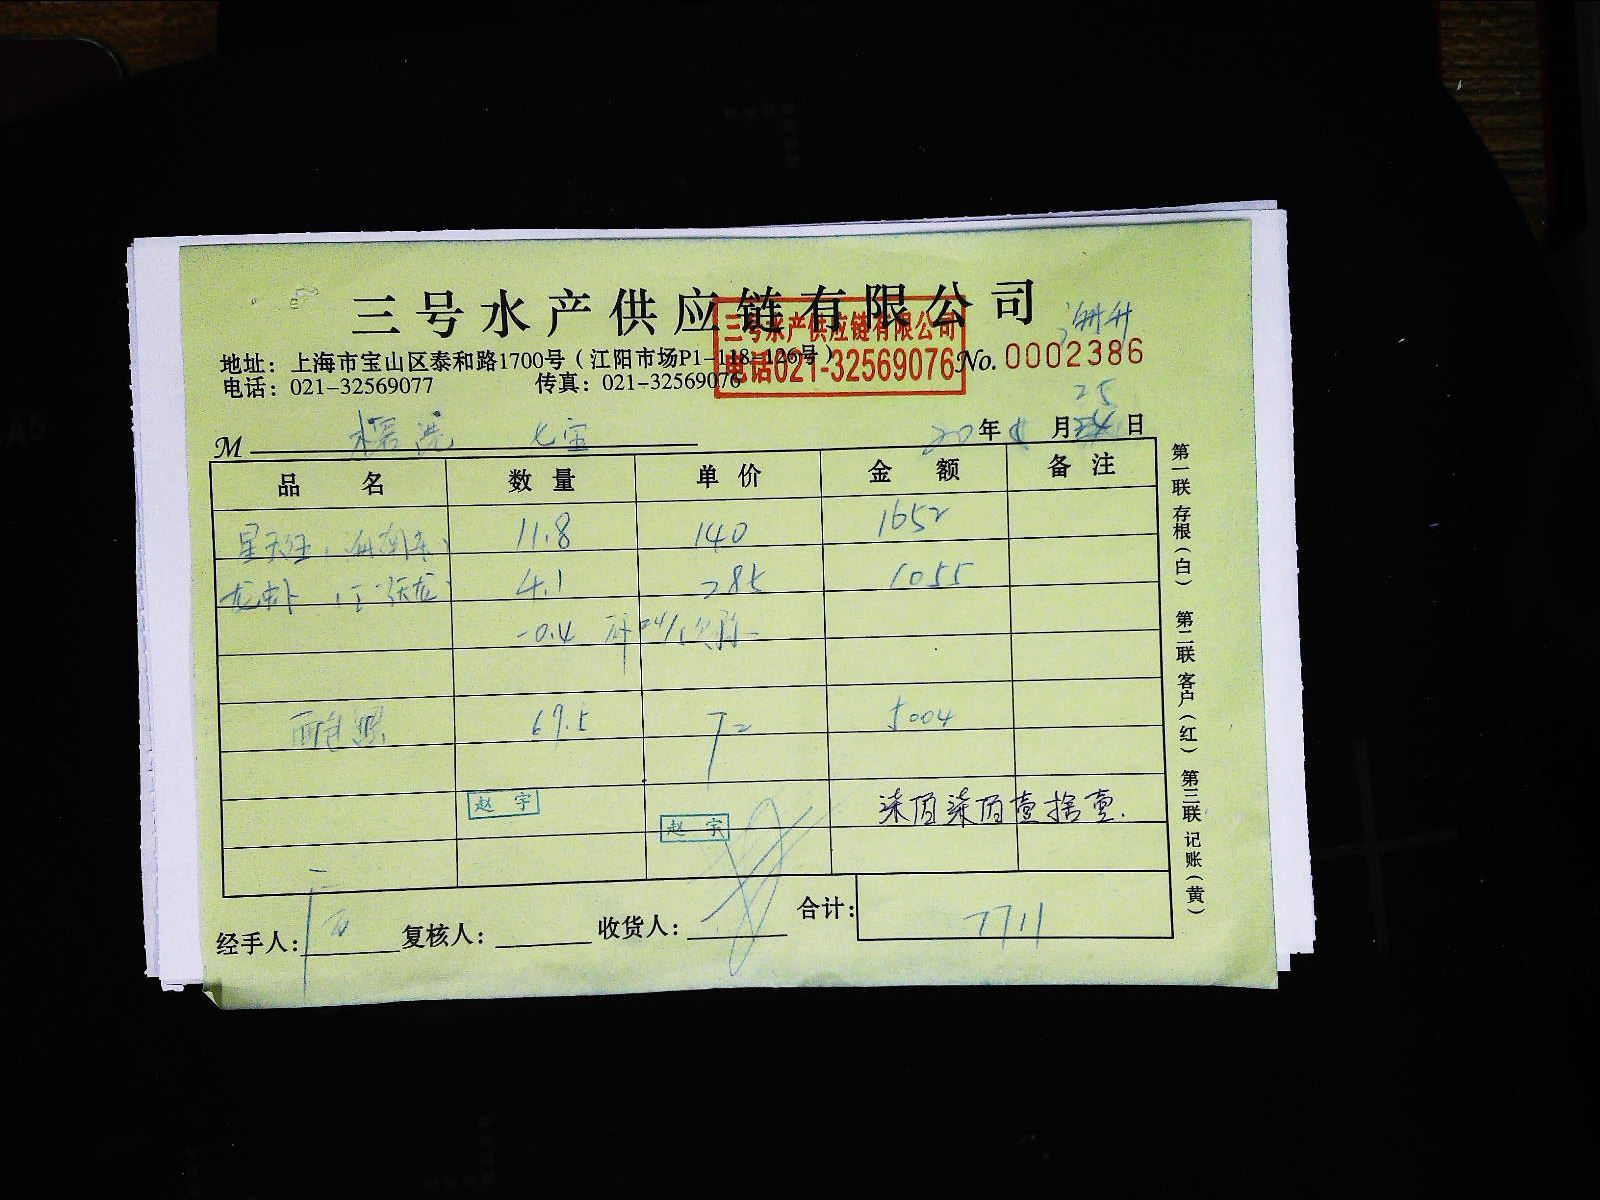 三号水产供应链有限公司
三号水产供应链有限公司
电话021-32569076
地址：上海市宝山区泰和路1700号（江阳市场P1-118-126号）
No. 0002386
电话：021-32569077 传真：021-32569076
25
M 七宝 20年8月日
品名 数量 单价 金额 备注
11.8 140 1652
4.1 285 1055
-0.4
67.5 72 5004
赵宇
赵宇
柒百柒百壹拾壹.
经手人： 复核人： 收货人： 合计： 7711
第一联 存根（白） 第二联 客户（红） 第三联 记账（黄）